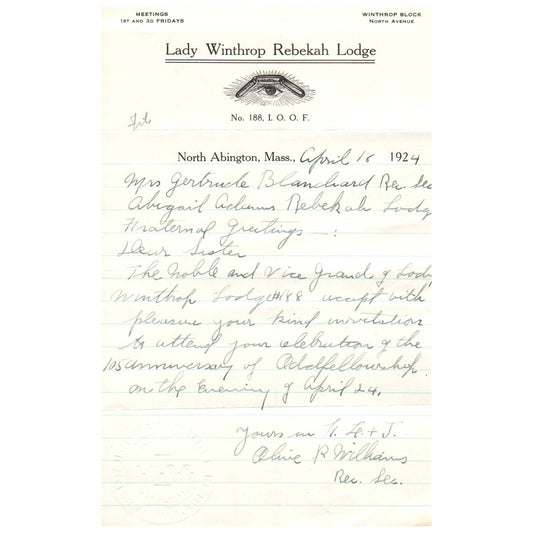 MEETINGS
1ST AND 3D FRIDAYS
WINTHROP BLOCK
NORTH AVENUE
Lady Winthrop Rebekah Lodge
No. 188, I. O. O. F.
North Abington, Mass., April 18 1924
Mrs Gertrude Blanchard Rec. Sec
Abigail Adams Rebekah Lodg
Fraternal Greetings —:
Dear Sister
The Noble and Vice Grand of Lady
Winthrop Lodge #188 accept with
pleasure your kind invitation
to attend your celebration of the
105 anniversary of Oddfellowship
on the Evening of April 24.
Yours in F. L. + T.
Olive R Williams
Rec. Sec.